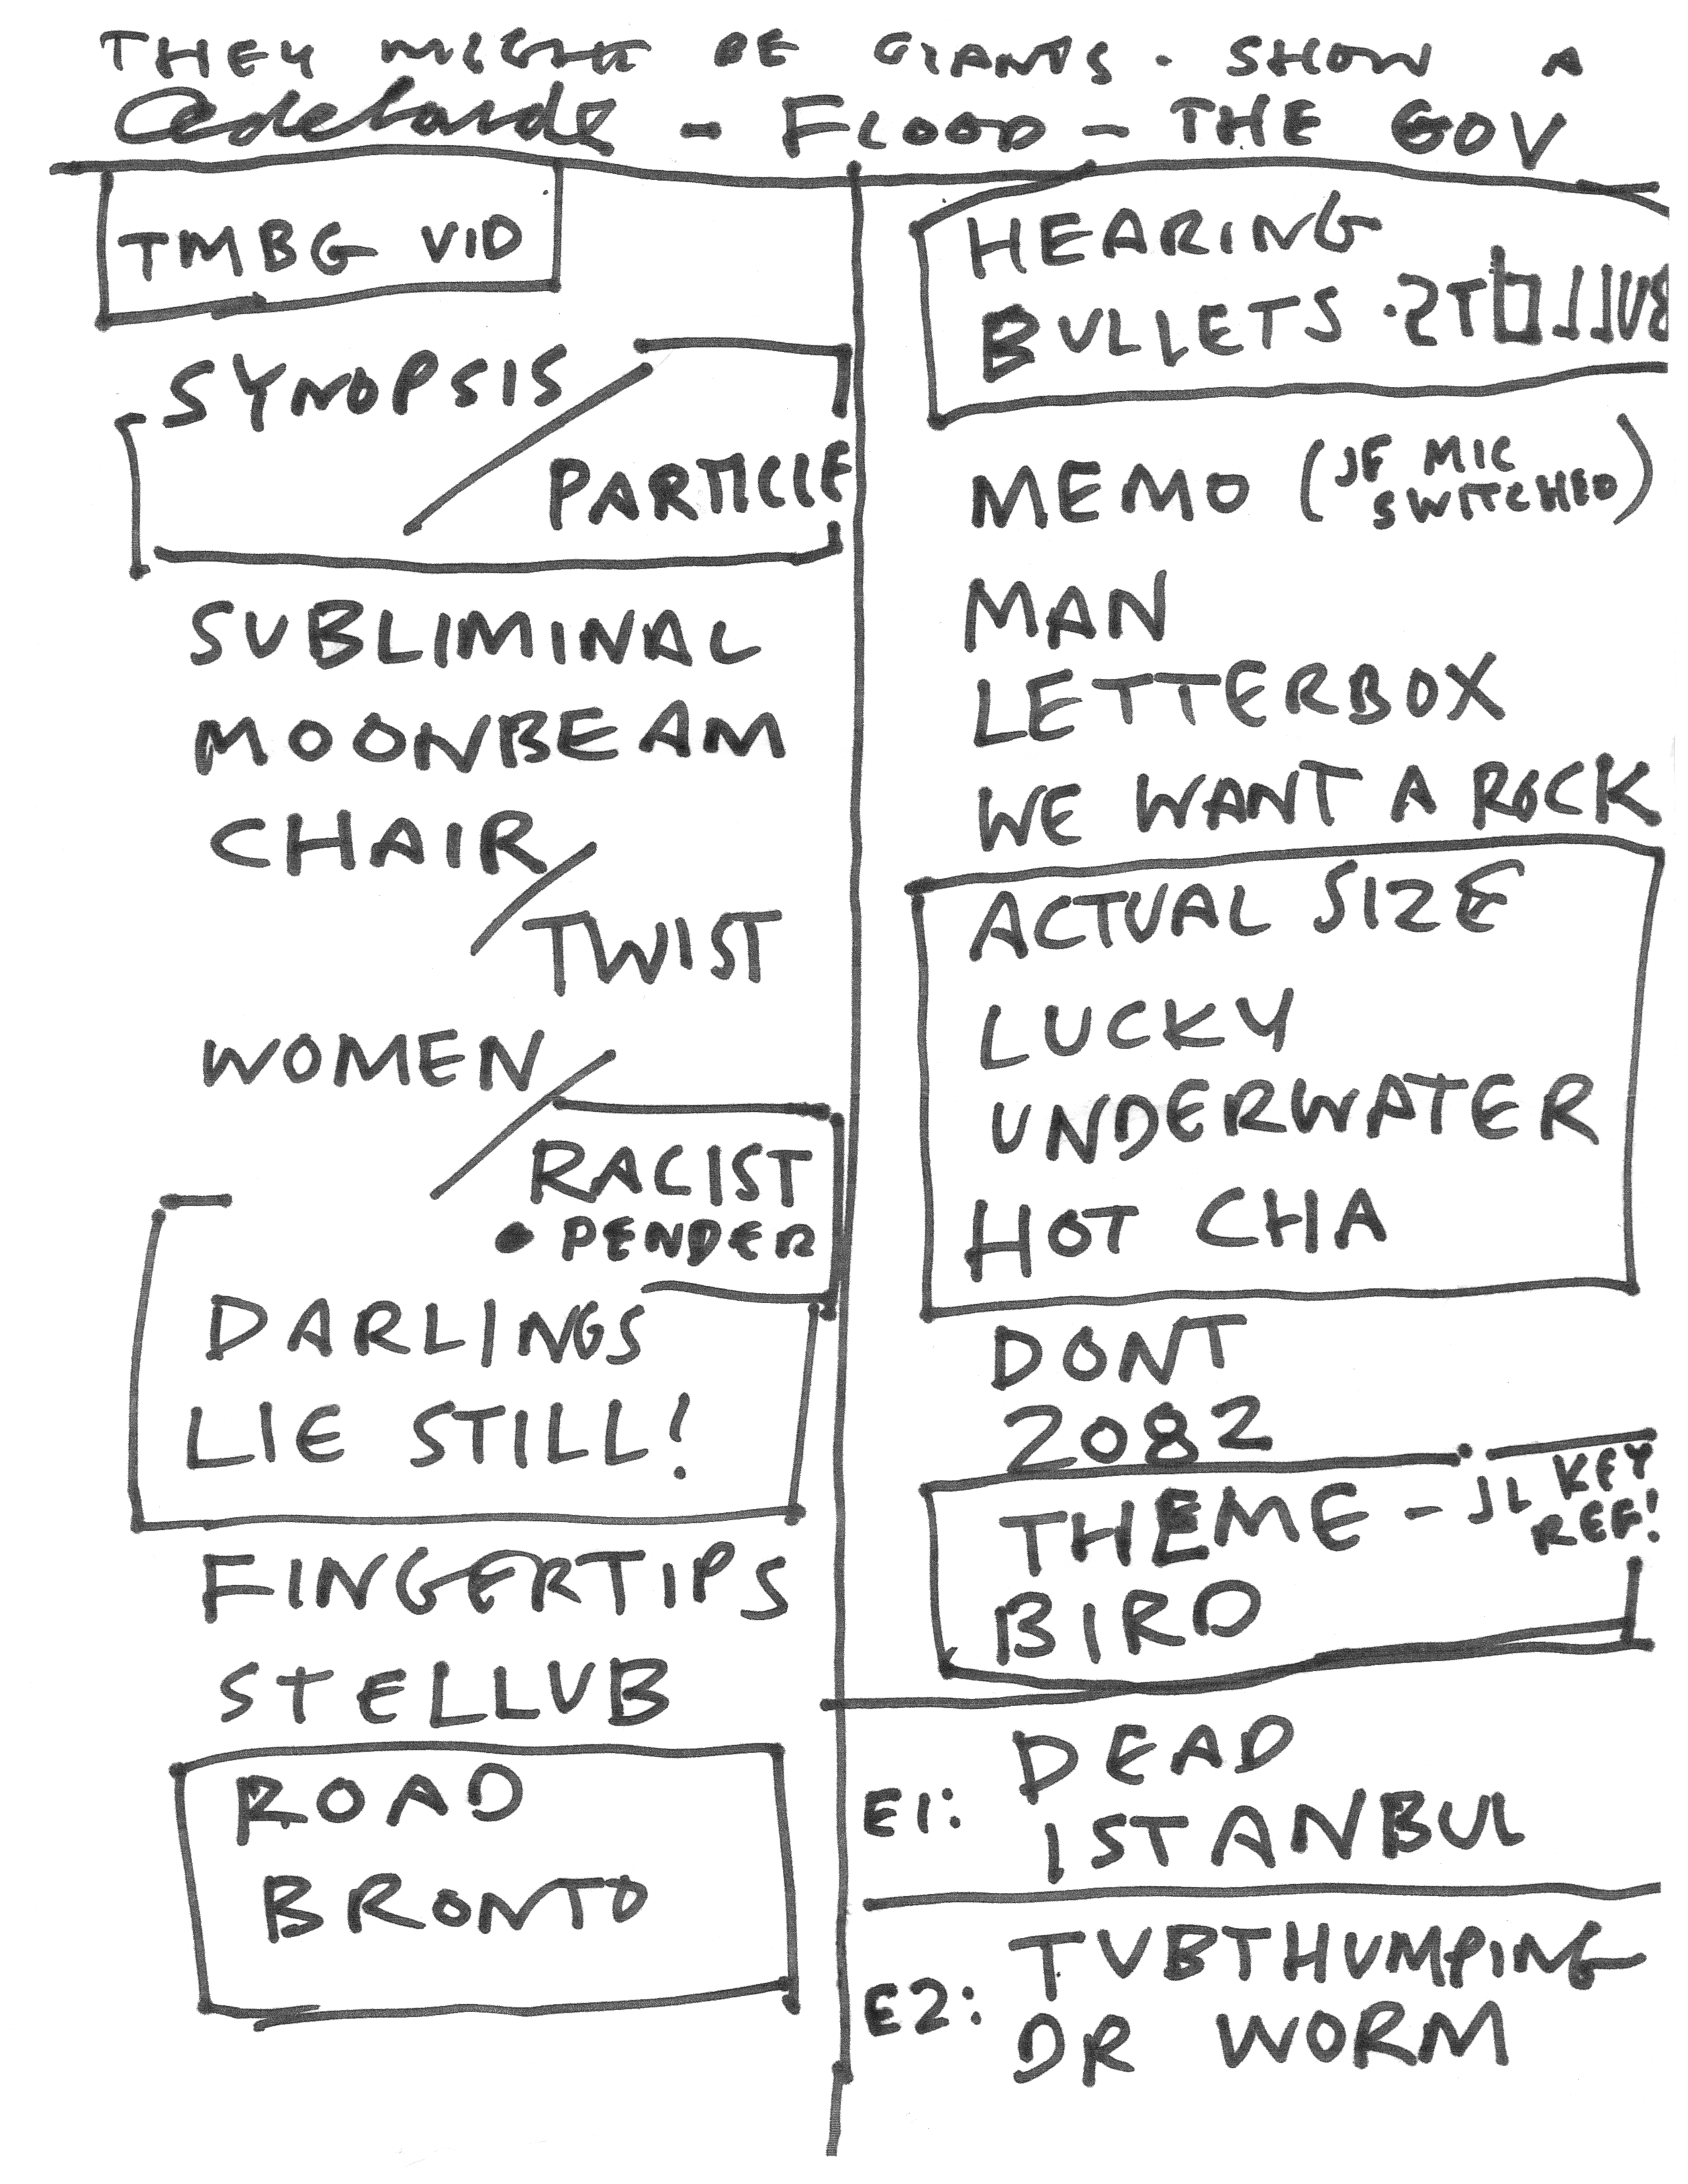 THEY MIGHT BE GIANTS. SHOW A
Adelaide - FLOOD - THE GOV
TMBG VID
SYNOPSIS /
PARTICLE
SUBLIMINAL
MOONBEAM
CHAIR /
TWIST
WOMEN /
RACIST
• PENDER
DARLINGS
LIE STILL!
FINGERTIPS
STELLUB
ROAD
BRONTO
HEARING
BULLETS · BULLETS
MEMO (JF MIC
SWITCHED)
MAN
LETTERBOX
WE WANT A ROCK
ACTUAL SIZE
LUCKY
UNDERWATER
HOT CHA
DONT
2082
THEME - JL KEY
REF!
BIRD
DEAD
E1: ISTANBUL
TUBTHUMPING
E2: DR WORM